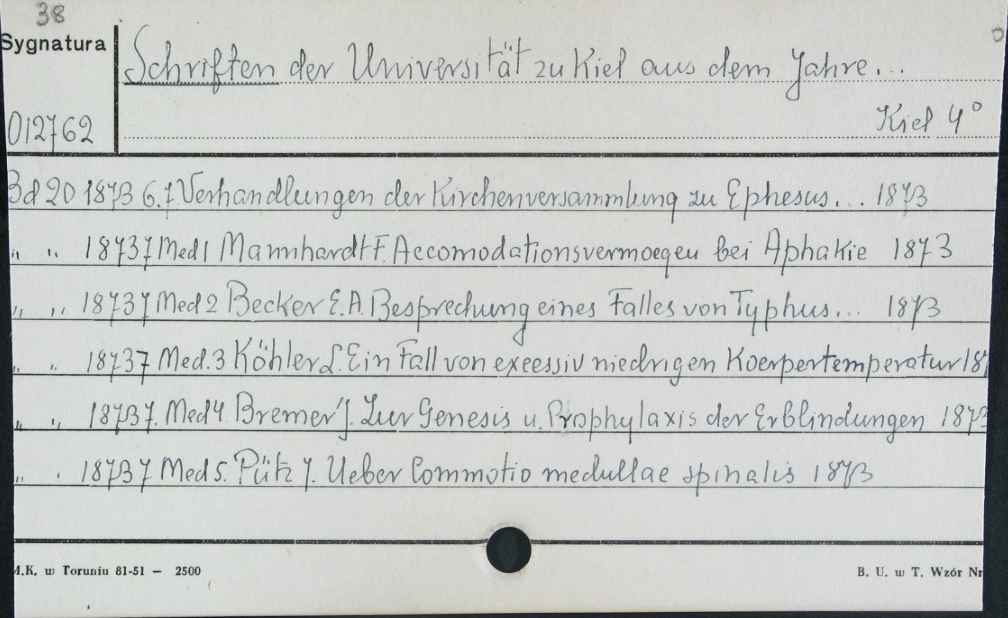 38
Sygnatura
Schriften der Universität zu Kiel aus dem Jahre...
012762
Kiel 4°
Bd 20 1873 6.7 Verhandlungen der Kirchenversammlung zu Ephesus... 1873
" " 1873 7 Med 1 Mannhardt F. Accomodationsvermoegen bei Aphakie 1873
" " 1873 7 Med 2 Becker E.A. Besprechung eines Falles von Typhus... 1873
" " 1873 7 Med. 3 Köhler L. Ein Fall von excessiv niedrigen Koerpertemperatur 18
" " 1873 7. Med 4 Bremer J. Zur Genesis u. Prophylaxis der Erblindungen 1873
" " 1873 7 Med 5. Pütz J. Ueber Commotio medullae spinalis 1873
M.K. w Toruniu 81-51 — 2500
B. U. w T. Wzór Nr